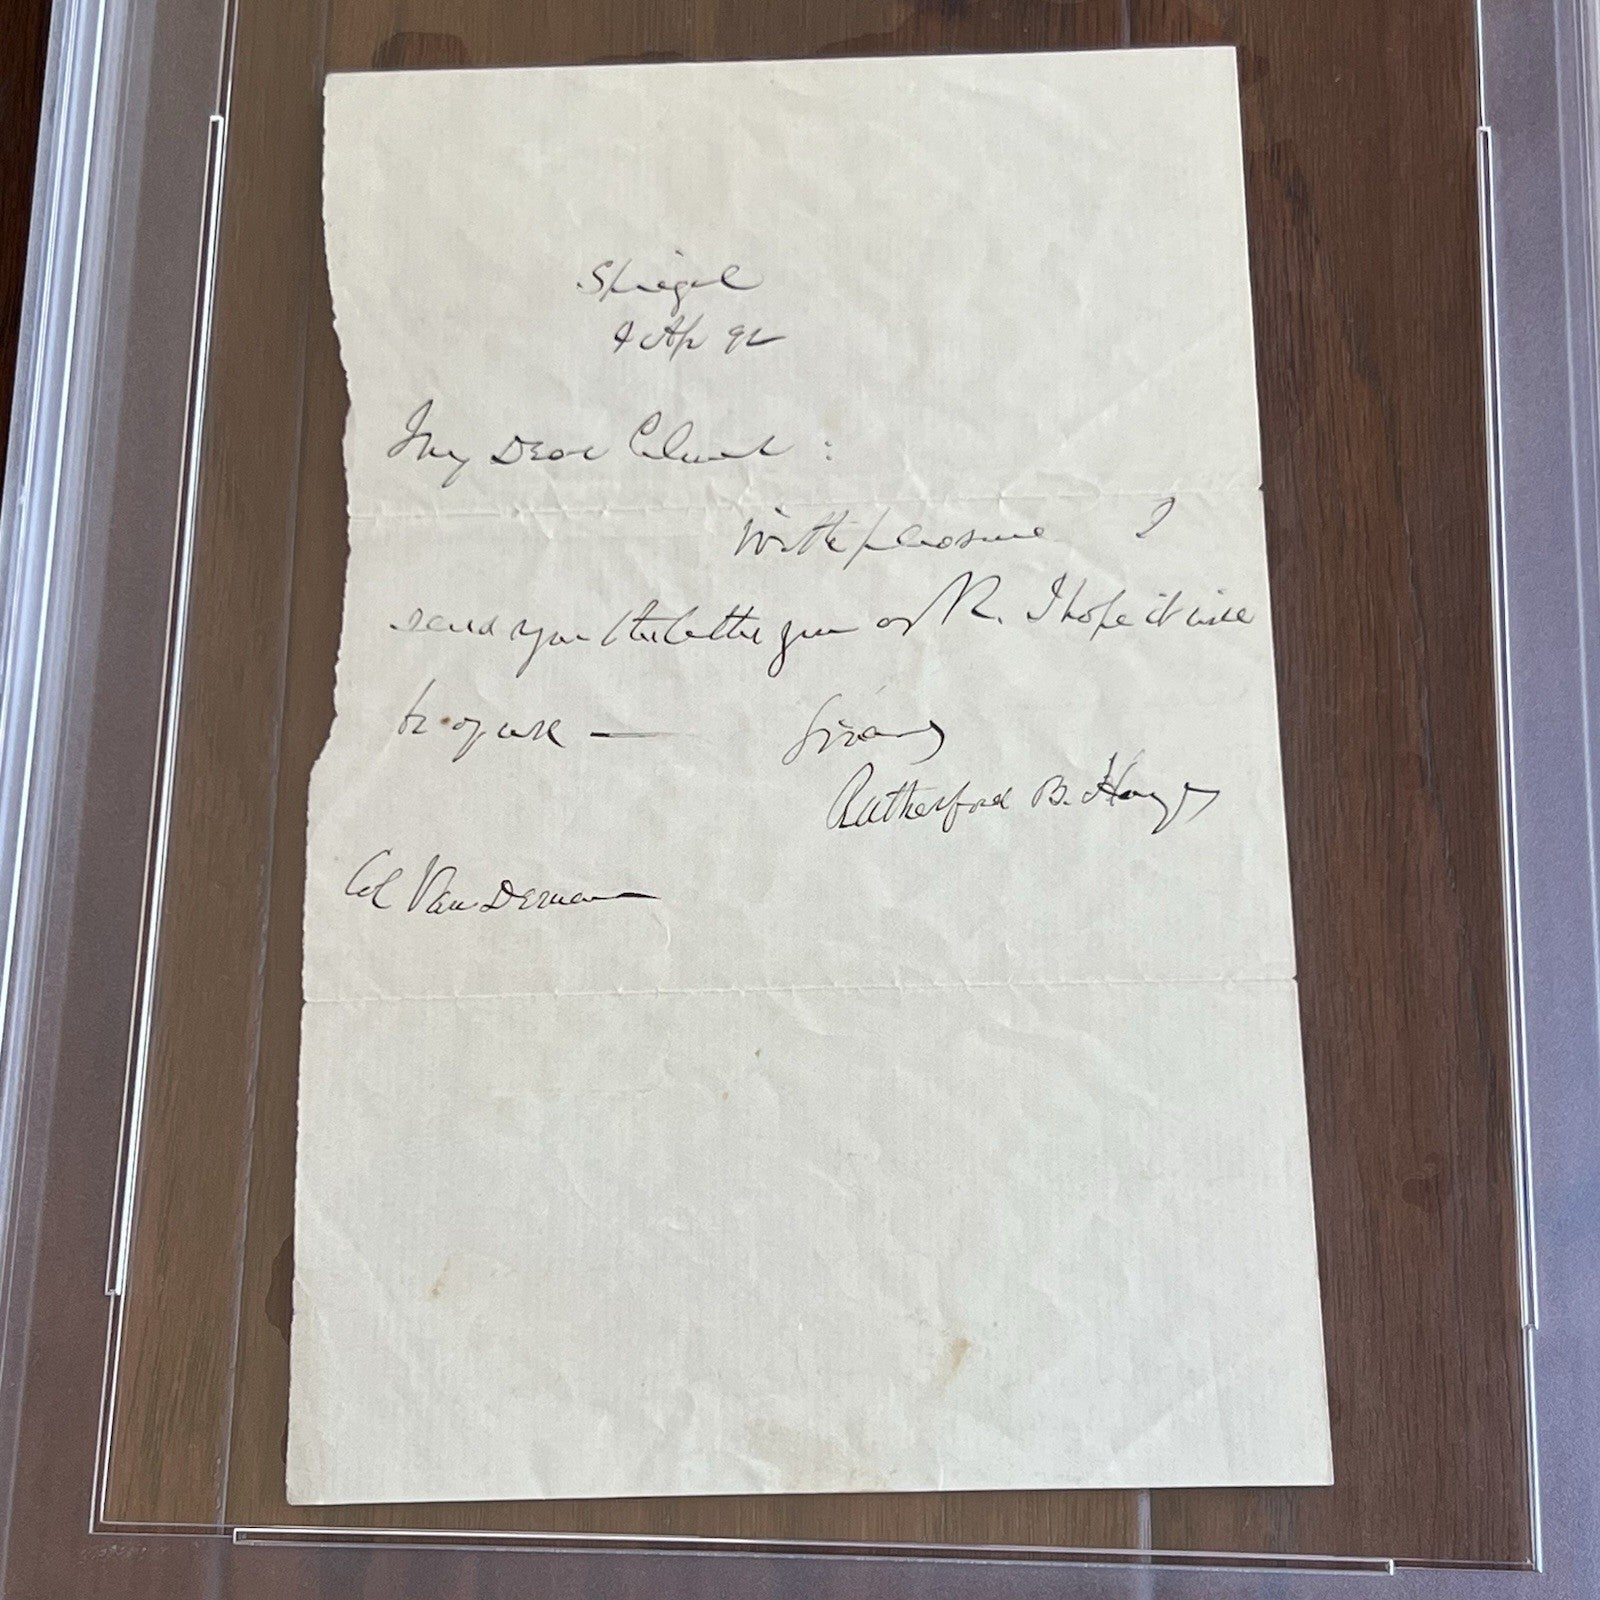 Spiegel
9 Ap 92
My Dear Colonel :
With pleasure I
send you the letter you ask. I hope it will
be of use —
Sincerely
Rutherford B. Hayes
Col Van Derman